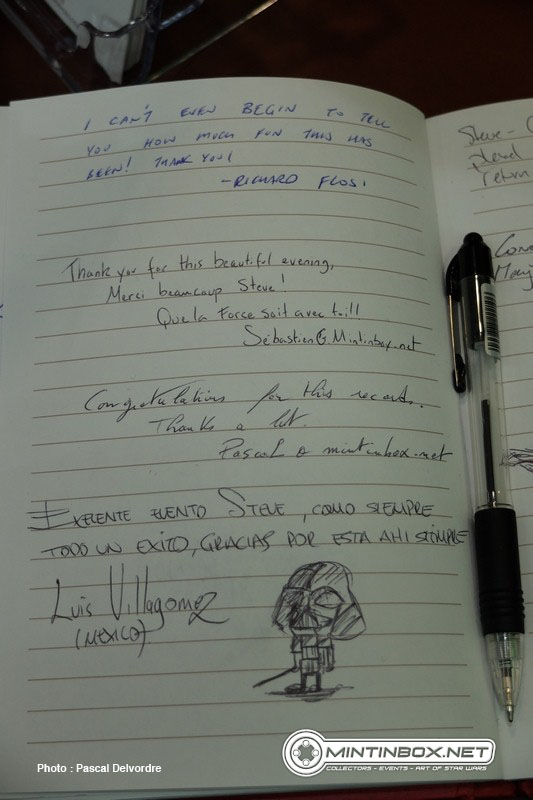 I CAN'T EVEN BEGIN TO TELL
YOU HOW MUCH FUN THIS HAS
BEEN! THANK YOU!
-RICHARD FLOSI
Thank you for this beautiful evening,
Merci beaucoup Steve!
Que la Force soit avec toi!!
Sébastien@Mintinbox.net
Congratulations for this record.
Thanks a lot.
Pascal @ mintinbox.net
EXELENTE EVENTO STEVE, COMO SIEMPRE
TODO UN EXITO, GRACIAS POR ESTA AHI SIEMPRE
Luis Villagomez
(MEXICO)
Steve-
return
Photo : Pascal Delvordre
MINTINBOX.NET
COLLECTORS - EVENTS - ART OF STAR WARS